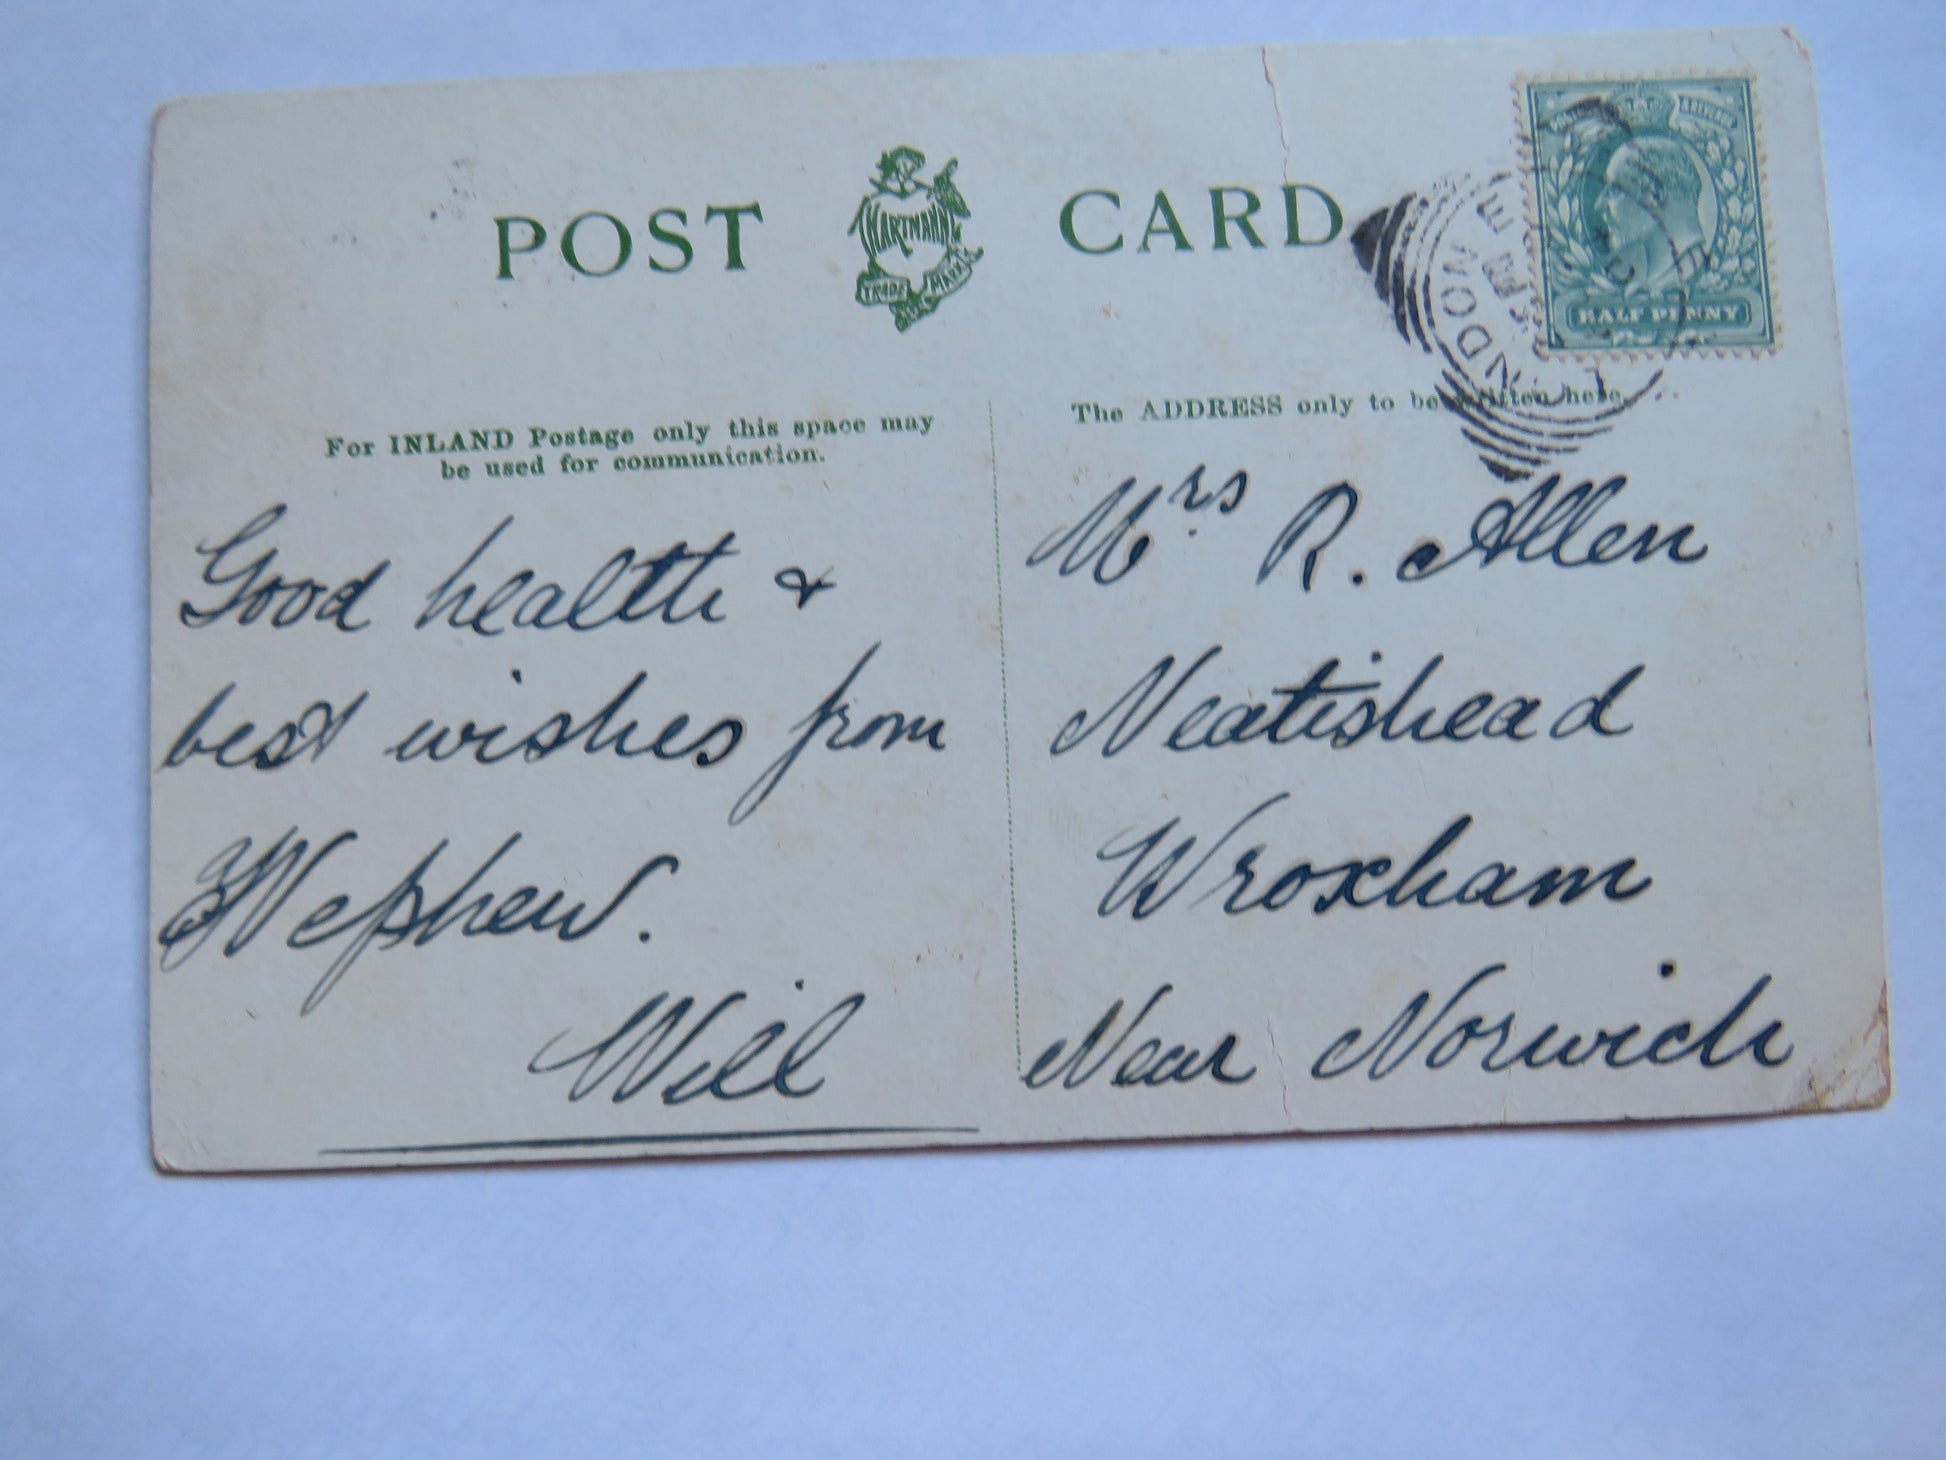 POST CARD
HARTMANN
TRADE MARK
For INLAND Postage only this space may
be used for communication.
The ADDRESS only to be written here.
HALF PENNY
LONDON E
PM
Good health &
best wishes from
Nephew.
Will
Mrs R. Allen
Neatishead
Wroxham
Near Norwich